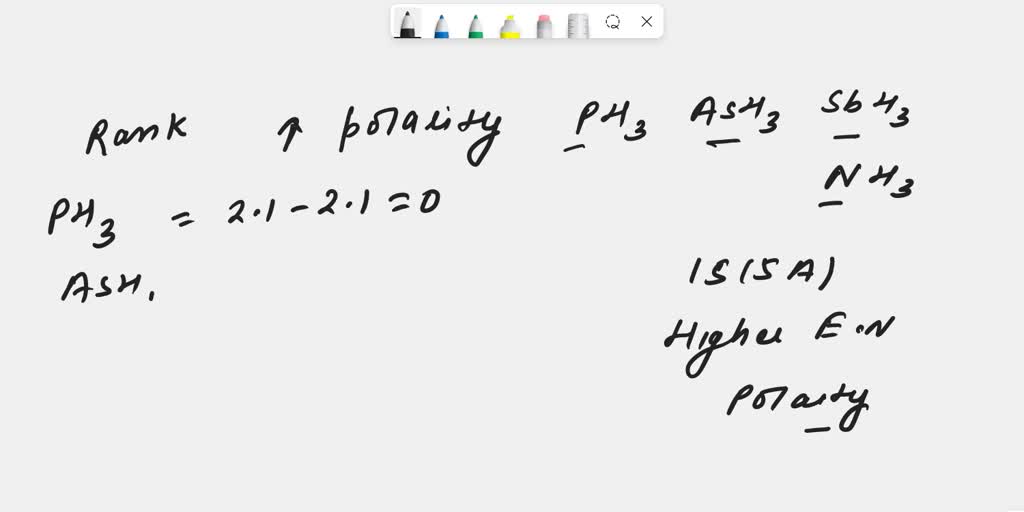 Rank ↑ polarity PH3 AsH3 SbH3
NH3
PH3 = 2.1 - 2.1 = 0
AsH.
15(5A)
Higher E.N
Polarity